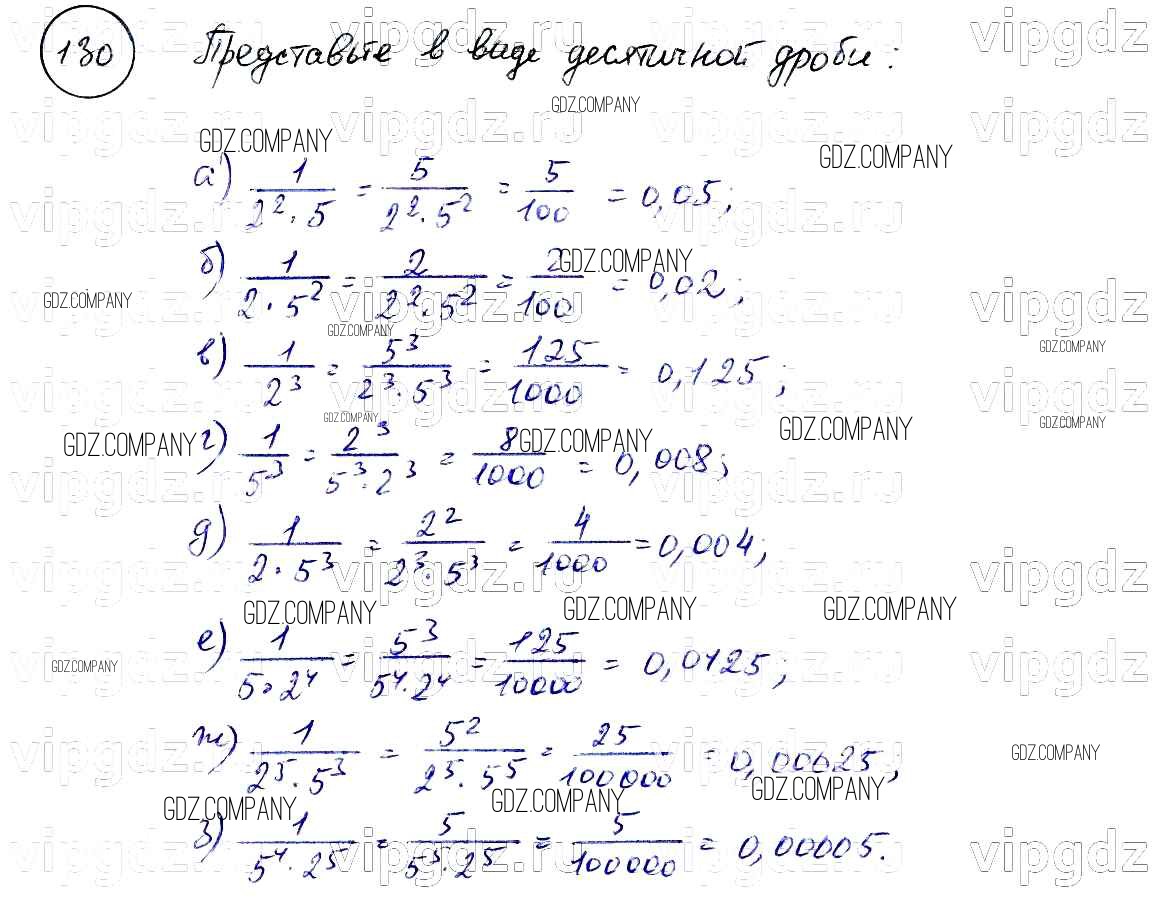 130 Представьте в виде десятичной дроби:
vipgdz.ru
GDZ.COMPANY
а) 1/(2² · 5) = 5/(2² · 5²) = 5/100 = 0,05;
б) 1/(2 · 5²) = 2/(2² · 5²) = 2/100 = 0,02;
в) 1/2³ = 5³/(2³ · 5³) = 125/1000 = 0,125;
г) 1/5³ = 2³/(5³ · 2³) = 8/1000 = 0,008;
д) 1/(2 · 5³) = 2²/(2³ · 5³) = 4/1000 = 0,004;
е) 1/(5 · 2⁴) = 5³/(5⁴ · 2⁴) = 125/10000 = 0,0125;
ж) 1/(2⁵ · 5³) = 5²/(2⁵ · 5⁵) = 25/100000 = 0,00025;
з) 1/(5⁴ · 2⁵) = 5/(5⁵ · 2⁵) = 5/100000 = 0,00005.